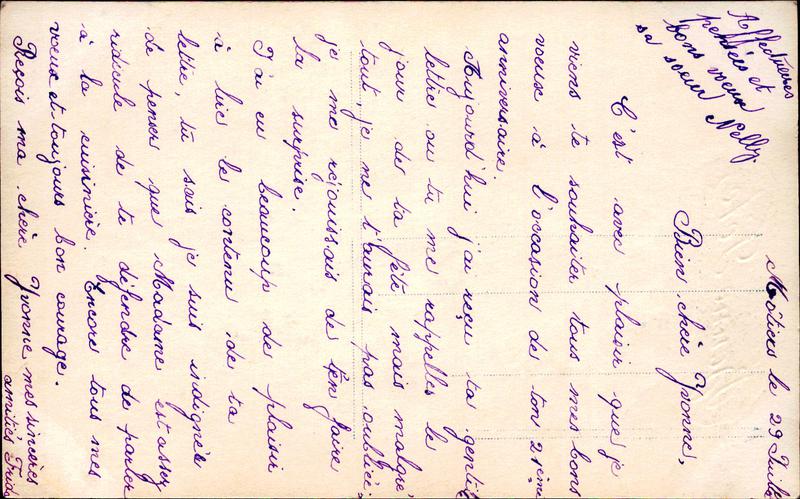 Môtiers le 29 Juil
Bien chère Yvonne,
C'est avec plaisir que je
viens te souhaiter tous mes bons
voeux à l'occasion de ton 21ème
anniversaire.
Aujourd'hui j'ai reçu ta gentil
lettre ou tu me rappelles le
jour de ta fête mais malgré
tout, je ne t'aurais pas oubliée;
je me rejouissais de t'en faire
la surprise.
J'ai eu beaucoup de plaisir
à lire le contenu de ta
lettre, tu sais je suis indignée
de penser que Madame est assez
ridicule de te défendre de parler
à la cuisinière. Encore tous mes
voeux et toujours bon courage.
Reçois ma chère Yvonne mes sincères
amitiés Frid
Affectueuses
pensées et
bons voeux
sa soeur Nelly